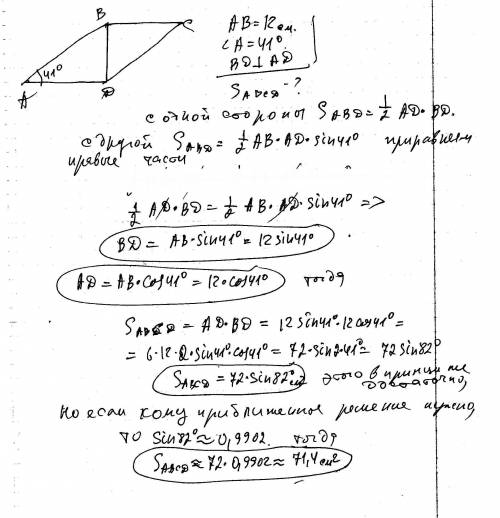 B C
AB = 12 см.
41° ∠A = 41°
BD ⊥ AD
A D
S ABCD - ?
с одной стороны S ABD = 1/2 AD · BD.
с другой S ABD = 1/2 AB · AD · sin 41° приравняем
правые части
1/2 AD · BD = 1/2 AB · AD · sin 41° =>
BD = AB · sin 41° = 12 sin 41°
AD = AB · cos 41° = 12 · cos 41° тогда
S ABCD = AD · BD = 12 sin 41° · 12 cos 41° =
= 6 · 12 · 2 · sin 41° · cos 41° = 72 · sin 2 · 41° = 72 sin 82°
S ABCD = 72 · sin 82° см² этого в принципе
достаточно,
но если кому приближенное решение нужно,
то sin 82° ≈ 0,9902. тогда
S ABCD ≈ 72 · 0,9902 ≈ 71,4 см²